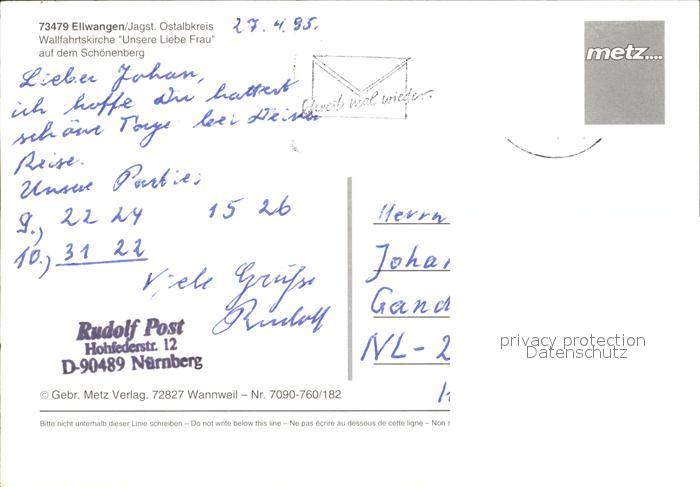 73479 Ellwangen/Jagst. Ostalbkreis
Wallfahrtskirche "Unsere Liebe Frau"
auf dem Schönenberg
27.4.95.
metz....
Schreib mal wieder.
Lieber Johan,
ich hoffe Du hattest
schöne Tage bei Deiner
Reise.
Unsere Partie:
9.) 22 24 15 26
10.) 31 22
Viele Grüße
Rudolf
Rudolf Post
Hohfederstr. 12
D-90489 Nürnberg
Herrn
Johan
Gand
NL-2
privacy protection
Datenschutz
© Gebr. Metz Verlag. 72827 Wannweil – Nr. 7090-760/182
Bitte nicht unterhalb dieser Linie schreiben – Do not write below this line – Ne pas écrire au dessous de cette ligne – Non s